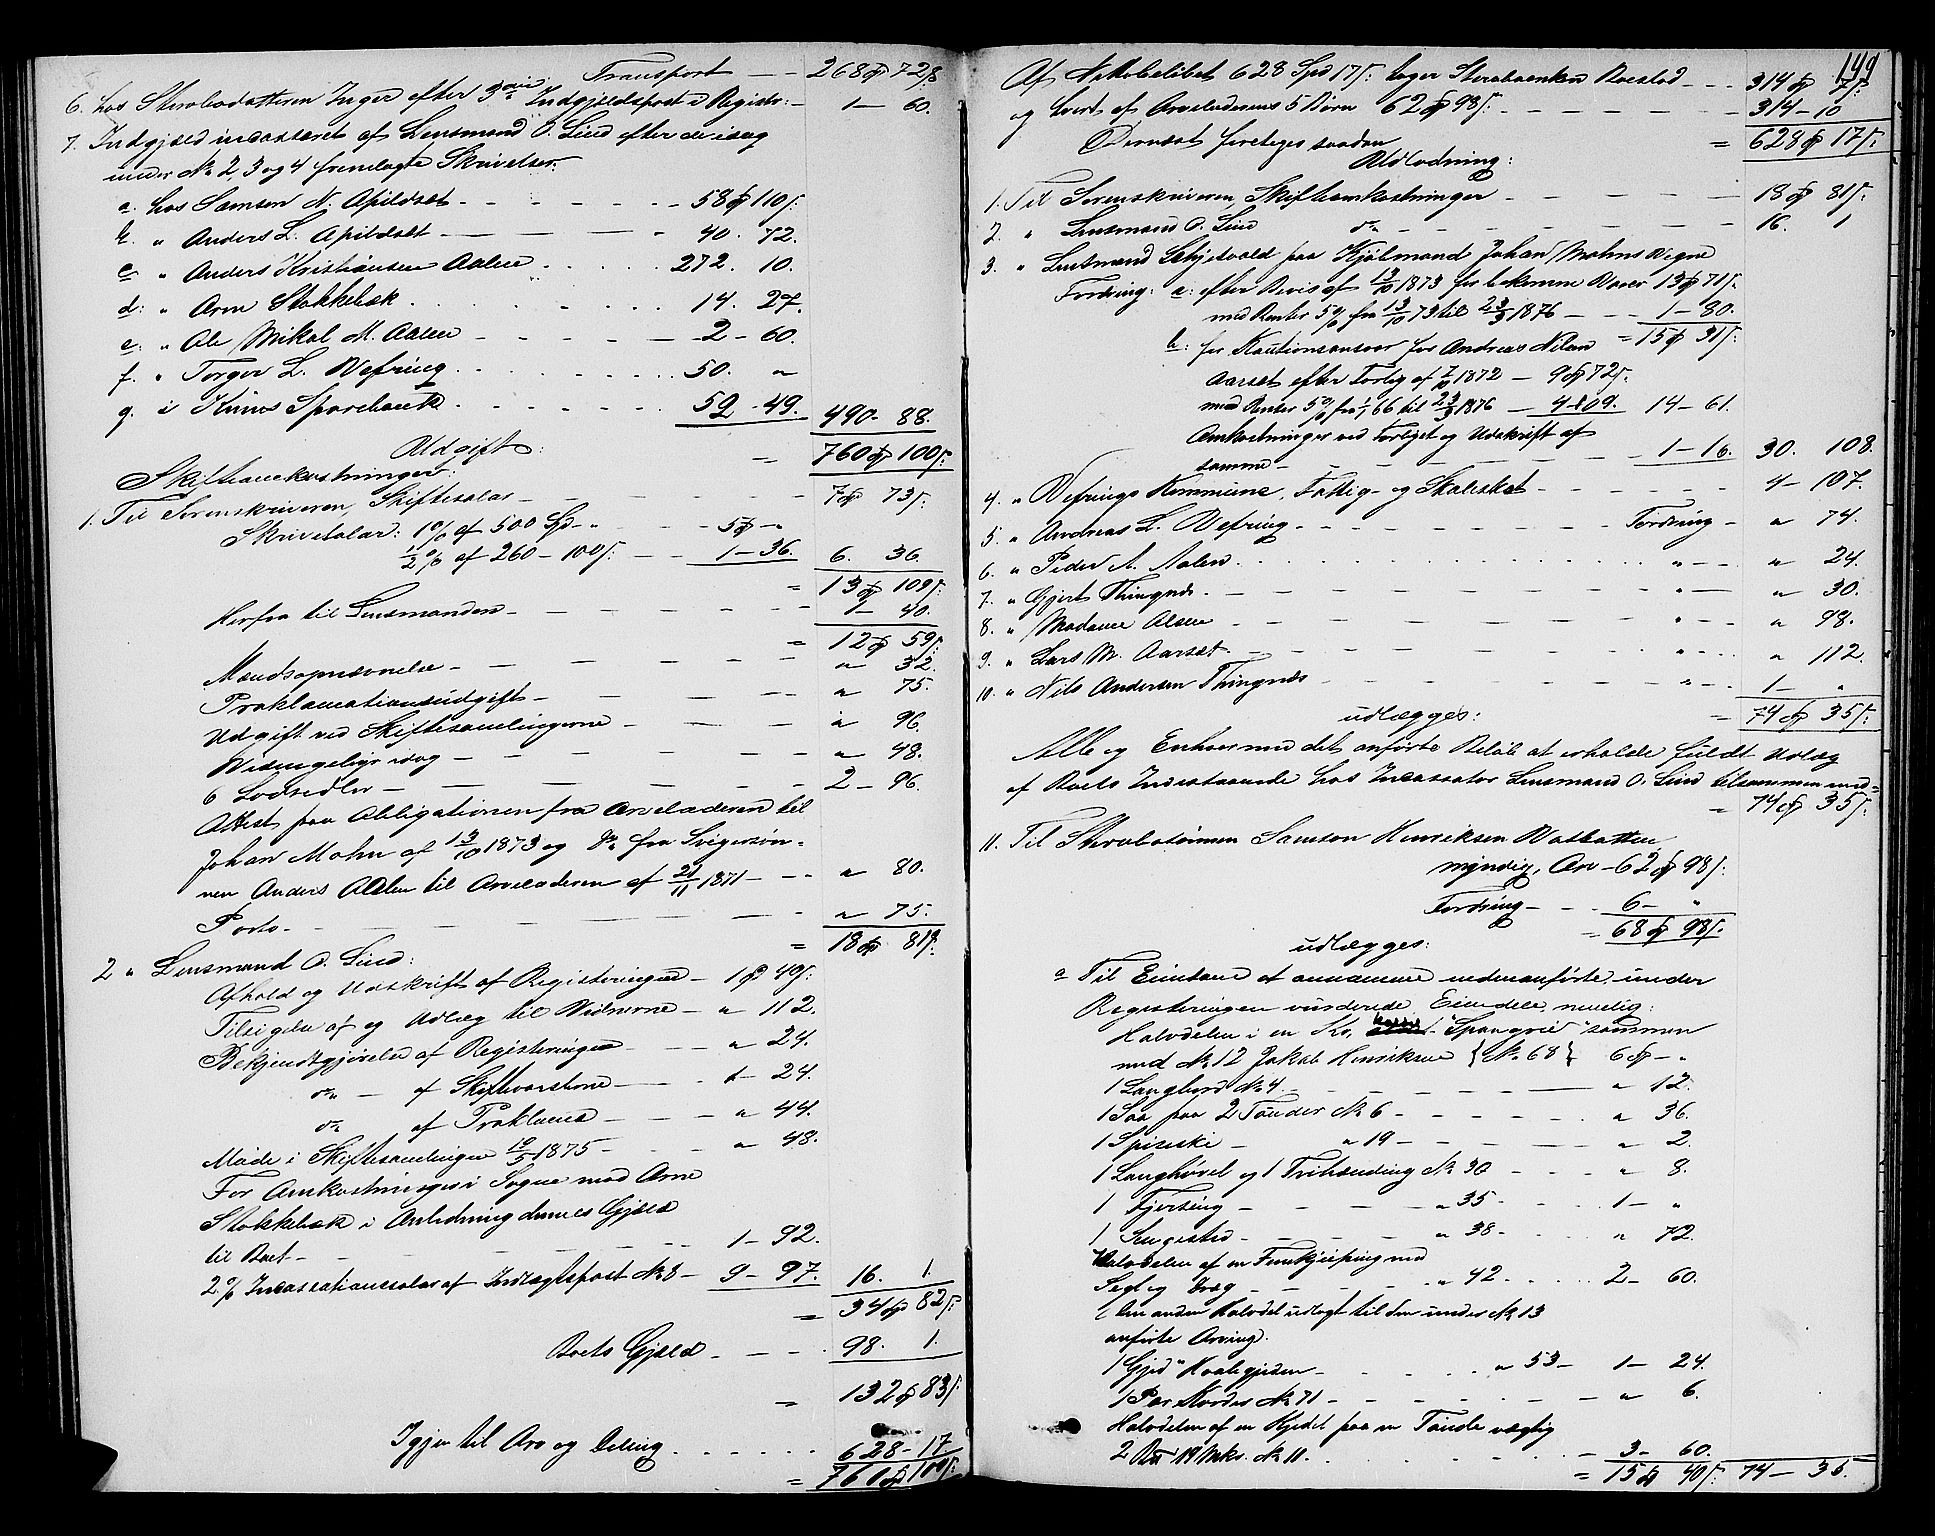 Transport — — 268 72
6. hos Stervbodatteren Inger efter 3die Indgjældspost i Registr: — 1 — 60.
7. Indgjæld incasseret af Lensmand O. Lind efter de idag
under No 2, 3 og 4 fremlagte Skrivelser.
a. hos Samson N. Apildset — 58 110
b. " Anders L. Apildset — 40. 72.
c. " Anders Kristiansen Aalen 272. 10.
d. " Arne Stokkebæk 14. 27.
e. " Ole Mikal M. Aalen — 2 — 60.
f. " Torger L. Vefring 50. "
g. i Kinns Sparebank 52 - 49. 490 - 88.
Udgift: = 760 100
Skifteomkostninger:
1. Til Sorenskriveren, Skiftesalær — 7 73
Skrivesalær: 1% af 500 Spd — " 5 — "
1/2% af 260 — 100 — 1 — 36. 6. 36.
= 13 109
Herfra til Lensmanden — 1 — 40.
= 12 59
Mændsopnævnelse — " 32.
Proklamationsudgift — " 75.
Udgift ved Skiftesamlingerne — " 96.
idag — " 48.
6 Lodsedler — 2 — 96.
Attest paa Obligationen fra Arveladeren til
Johan Mohn af 13/10 1873 og do fra Svigersøn-
nen Anders Aalen til Arveladeren af 21/11 1871 — " 80.
Porto — " 75.
= 18 81
2 " Lensmand O. Lind:
Afhold og Udskrift af Registeringen — 1 40
Tilsigelse af og Udlæg til Vidnerne — " 112.
Bekjendtgjørelse af Registeringen — " 24.
do — af Skiftevarslerne — 1 — 24.
do af Proklama — " 44.
Møde i Skiftesamlingen 19/5 1875 — " 48.
For Omkostninger i Sagen mod Arne
Stokkebæk i Anledning dennes Gjæld
til Boet — 1 — 92.
2% Incassationssalær af Indtægtspost No 8 — 9 — 97. 16. 1.
= 34 82
Boets Gjæld — 98. 1.
= 132 83
Igjen til Arv og Deling 628 - 17
= 761 100
199
Af Nettobeløbet 628 Spd 17 tager Stervboenken Boeslod — 314 7
og hvert af Arveladerens 5 Børn 62 98 — 314 — 10
Dernæst foretoges saadan = 628 17
Udlodning:
1. Til Sorenskriveren, Skifteomkostninger — 18 81
2. " Lensmand O. Lind do — 16. 1
3. " Lensmand paa Kjøbmand Johan Mohns Vegne
Fordring: a: efter Bevis af 13/10 1873 for bekomne Varer 13 71
med Renter 5% fra 13/10 73 til 23/3 1876 — 1 — 80.
= 15 31
b: for Kautionsansvar for Andreas Nilsen
Aarset efter Forlig af 7/10 1872 — 9 72
med Renter 5% fra 1/1 66 til 23/3 1876 — 4 - 109. 14 — 61.
Omkostninger ved Forliget og Udskrift af
samme — 1 — 16. 30. 108.
4. " Vefrings Kommune, Fattig- og Skoleskat — 4 — 107.
5. " Andreas L. Vefring — Fordring — " 74.
6. " Peder A. Aalen " — " 24.
7. " Gjert Thingnæs " — " 30.
8. " Madame Olsen " — " 98.
9. " Lars M. Aarset " — " 112.
10. " Nils Andersen Thingnæs " — 1 — "
udlægges: = 74 35
Alle og Enhver med det anførte Beløb at erholde fuldt Udlæg
af Boets Indestaaende hos Incassator Lensmand O. Lind tilsammen med =
= 74 35
11. Til Stervbosønnen Samson Henriksen
myndig, Arv — 62 98
Fordring — 6 — "
= 68 98
udlægges:
a Til Eiendom at annamme nedenanførte, under
Registeringen vurderede Eiendele, nemlig:
Halvdelen i en Ko, sammen
med No 12 Jakob Henriksen {No 68} 6 — "
1 No 4 — " 12.
1 Saa paa 2 Tønder No 6 — " 36.
1 Spiseske — " 19 — " 2.
1 Langhøvel og 1 No 30 — " 8.
1 Fjering — " 35 — 1 — "
1 Sengested — " 38 — " 72.
Halvdelen af en med
Segl og — " 42 — 2 — 60.
(Den anden Halvdel udlagt til den under No 13
anførte Arving).
1 Gjed — " 53 — 1 — 24.
1 Par No 71 — " 6.
Halvdelen af en Kjedel paa en Tønde vægtig
2 19 Mks. No 11. — 3 — 60.
= 15 40 74 — 35.